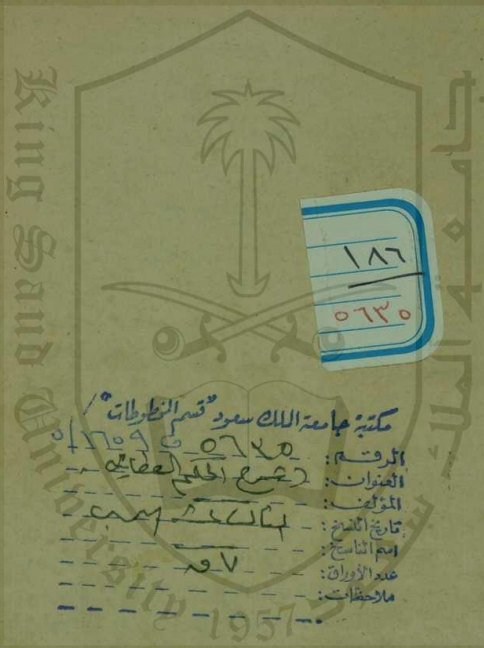 King Saud University
جامعة الملك سعود
١٨٦
٥٦٣٥
مكتبة جامعة الملك سعود "قسم المخطوطات"
الرقم: ٥٦٣٥
العنوان: شرح الحكم العطائية
المؤلف:
تاريخ النسخ:
اسم الناسخ:
عدد الأوراق: ٧ ق
ملاحظات:
1957